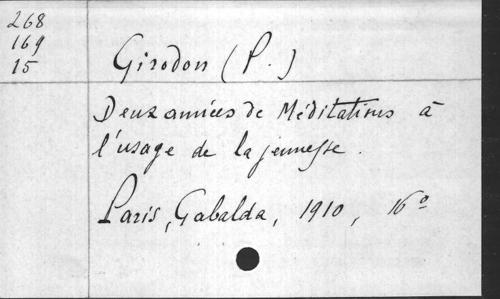 268
169
15
Girodon (P.)
Deux années de Méditations à
l'usage de la jeunesse.
Paris, Gabalda, 1910, 16º